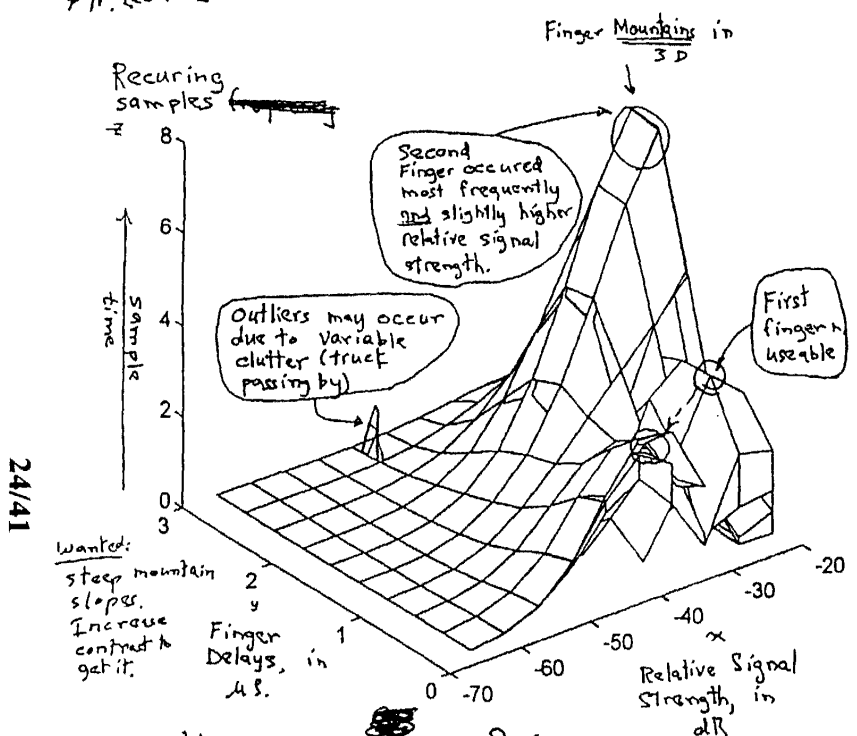 Finger Mountains in
3 D
Recuring
samples
z
8
6
4
2
0
sample
time
Second
Finger occured
most frequently
and slightly higher
relative signal
strength.
Outliers may occur
due to variable
clutter (truck
passing by)
First
finger
useable
24/41
Wanted:
steep mountain
slopes.
Increase
contrast to
get it.
3
2
1
0
y
Finger
Delays, in
µs.
-70
-60
-50
-40
-30
-20
x
Relative Signal
Strength, in
dB